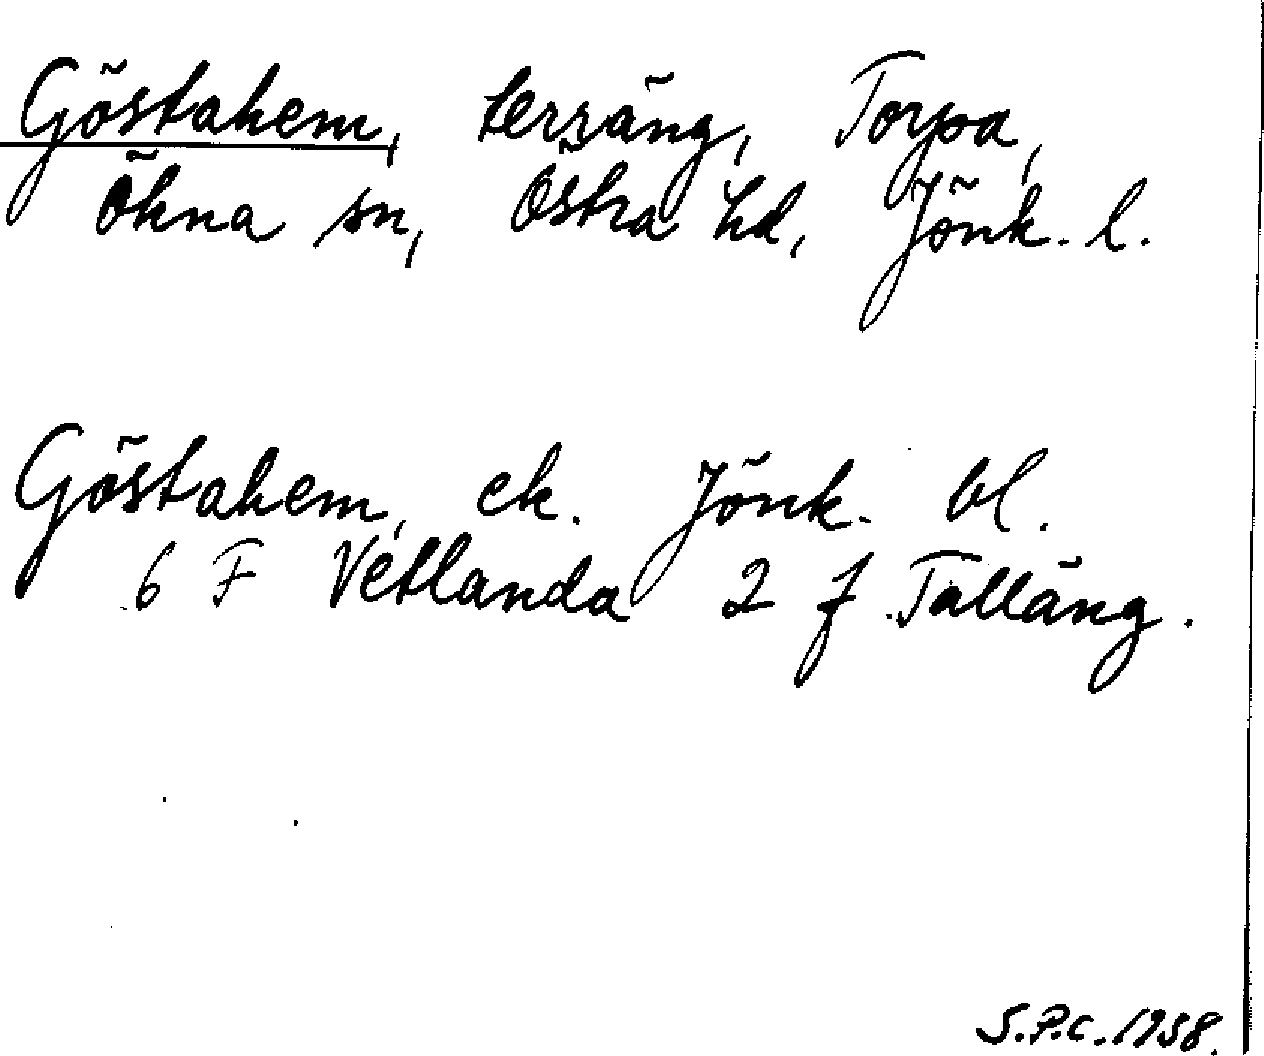 Göstahem, terräng, Torpa,
Ökna sn, Östra hd, Jönk. l.
Göstahem, ek. Jönk. bl.
6 F Vetlanda 2 f Talläng.
S.P.C. 1958.